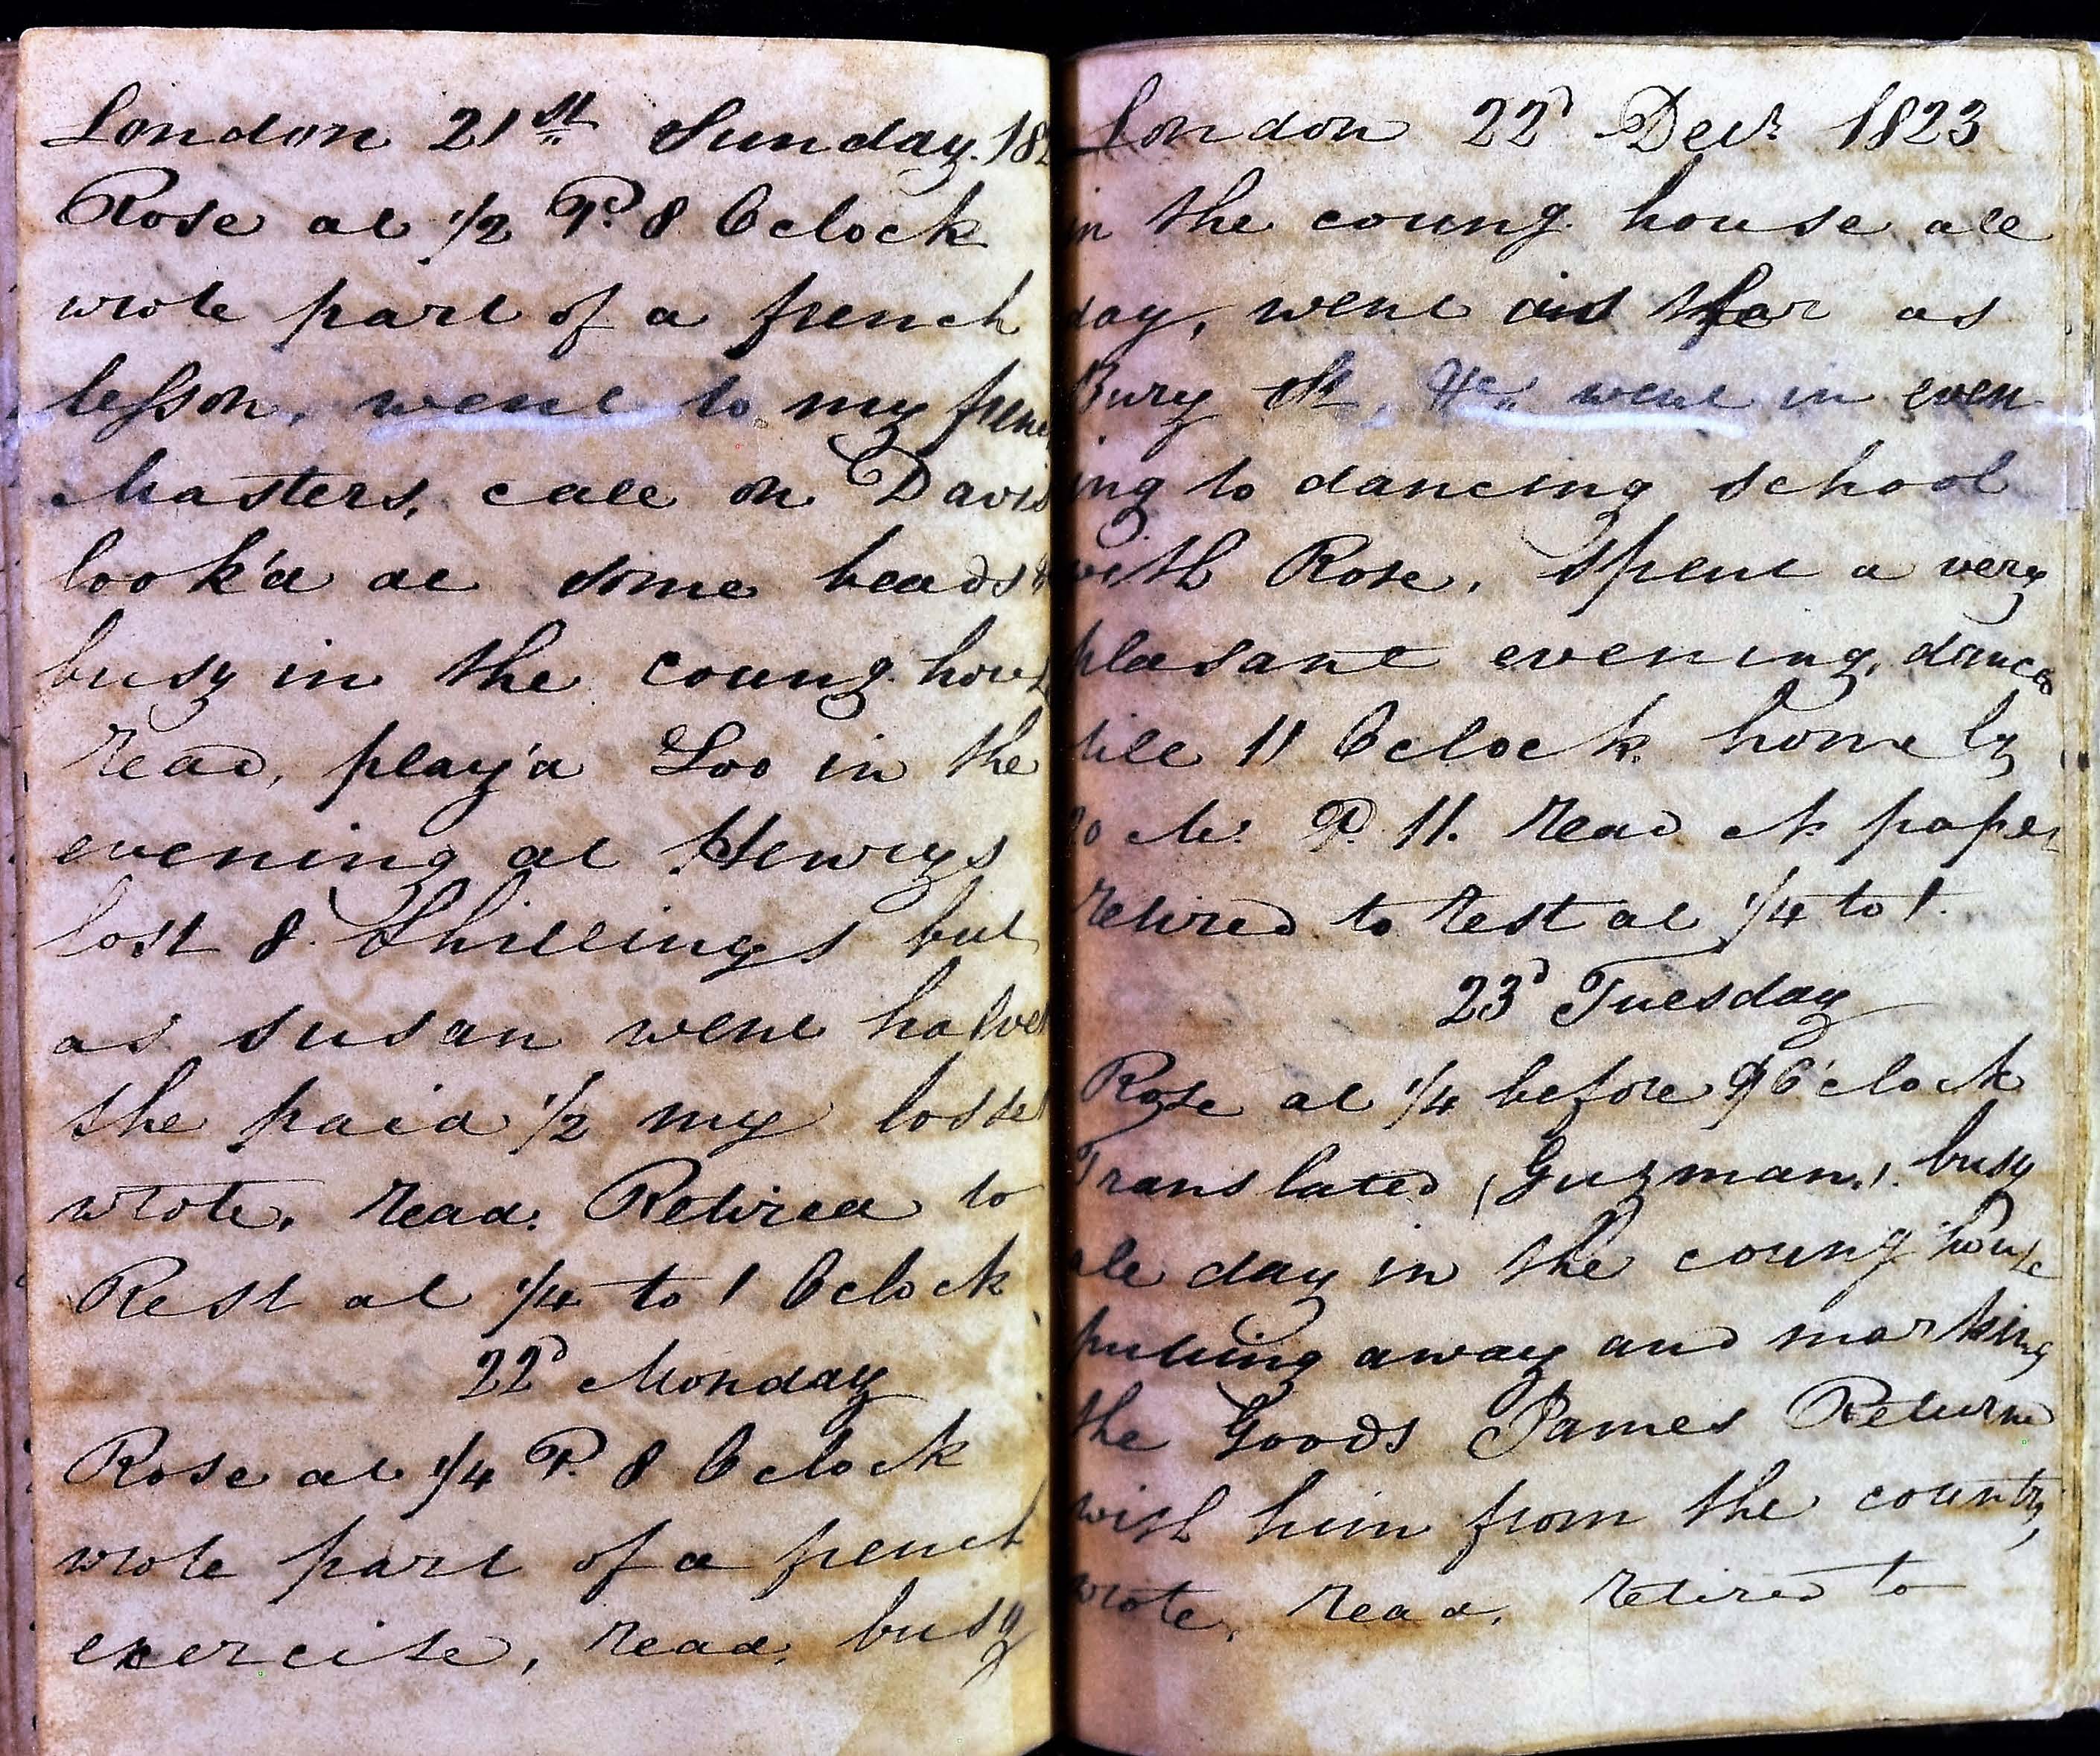 London 21st Sunday. 182
Rose at 1/2 P. 8 Oclock
wrote part of a french
lesson, went to my frenc
Masters, call on Davis
look'd at some beads &
busy in the coung. hous
read, play'd Loo in the
evening at Henrys
lost 8 Shillings but
as susan went halves
she paid 1/2 my losse
wrote. read. Retired to
Rest at 1/4 to 1 Oclock
22d Monday
Rose at 1/4 P. 8 Oclock
wrote part of a french
exercise, read, busy
London 22d Decr 1823
in the coung. house all
day, went as far as
Bury St, &c, went in even
ing to dancing school
with Rose. Spent a very
pleasant evening, danced
till 11 Oclock home by
20 M. P. 11. Read paper
retired to rest at 1/4 to 1.
23d Tuesday
Rose at 1/4 before 9 O'clock
Translated (Guzman). busy
all day in the coung house
putting away and marking
the Goods James Returnd
with him from the country,
wrote, read, retired to